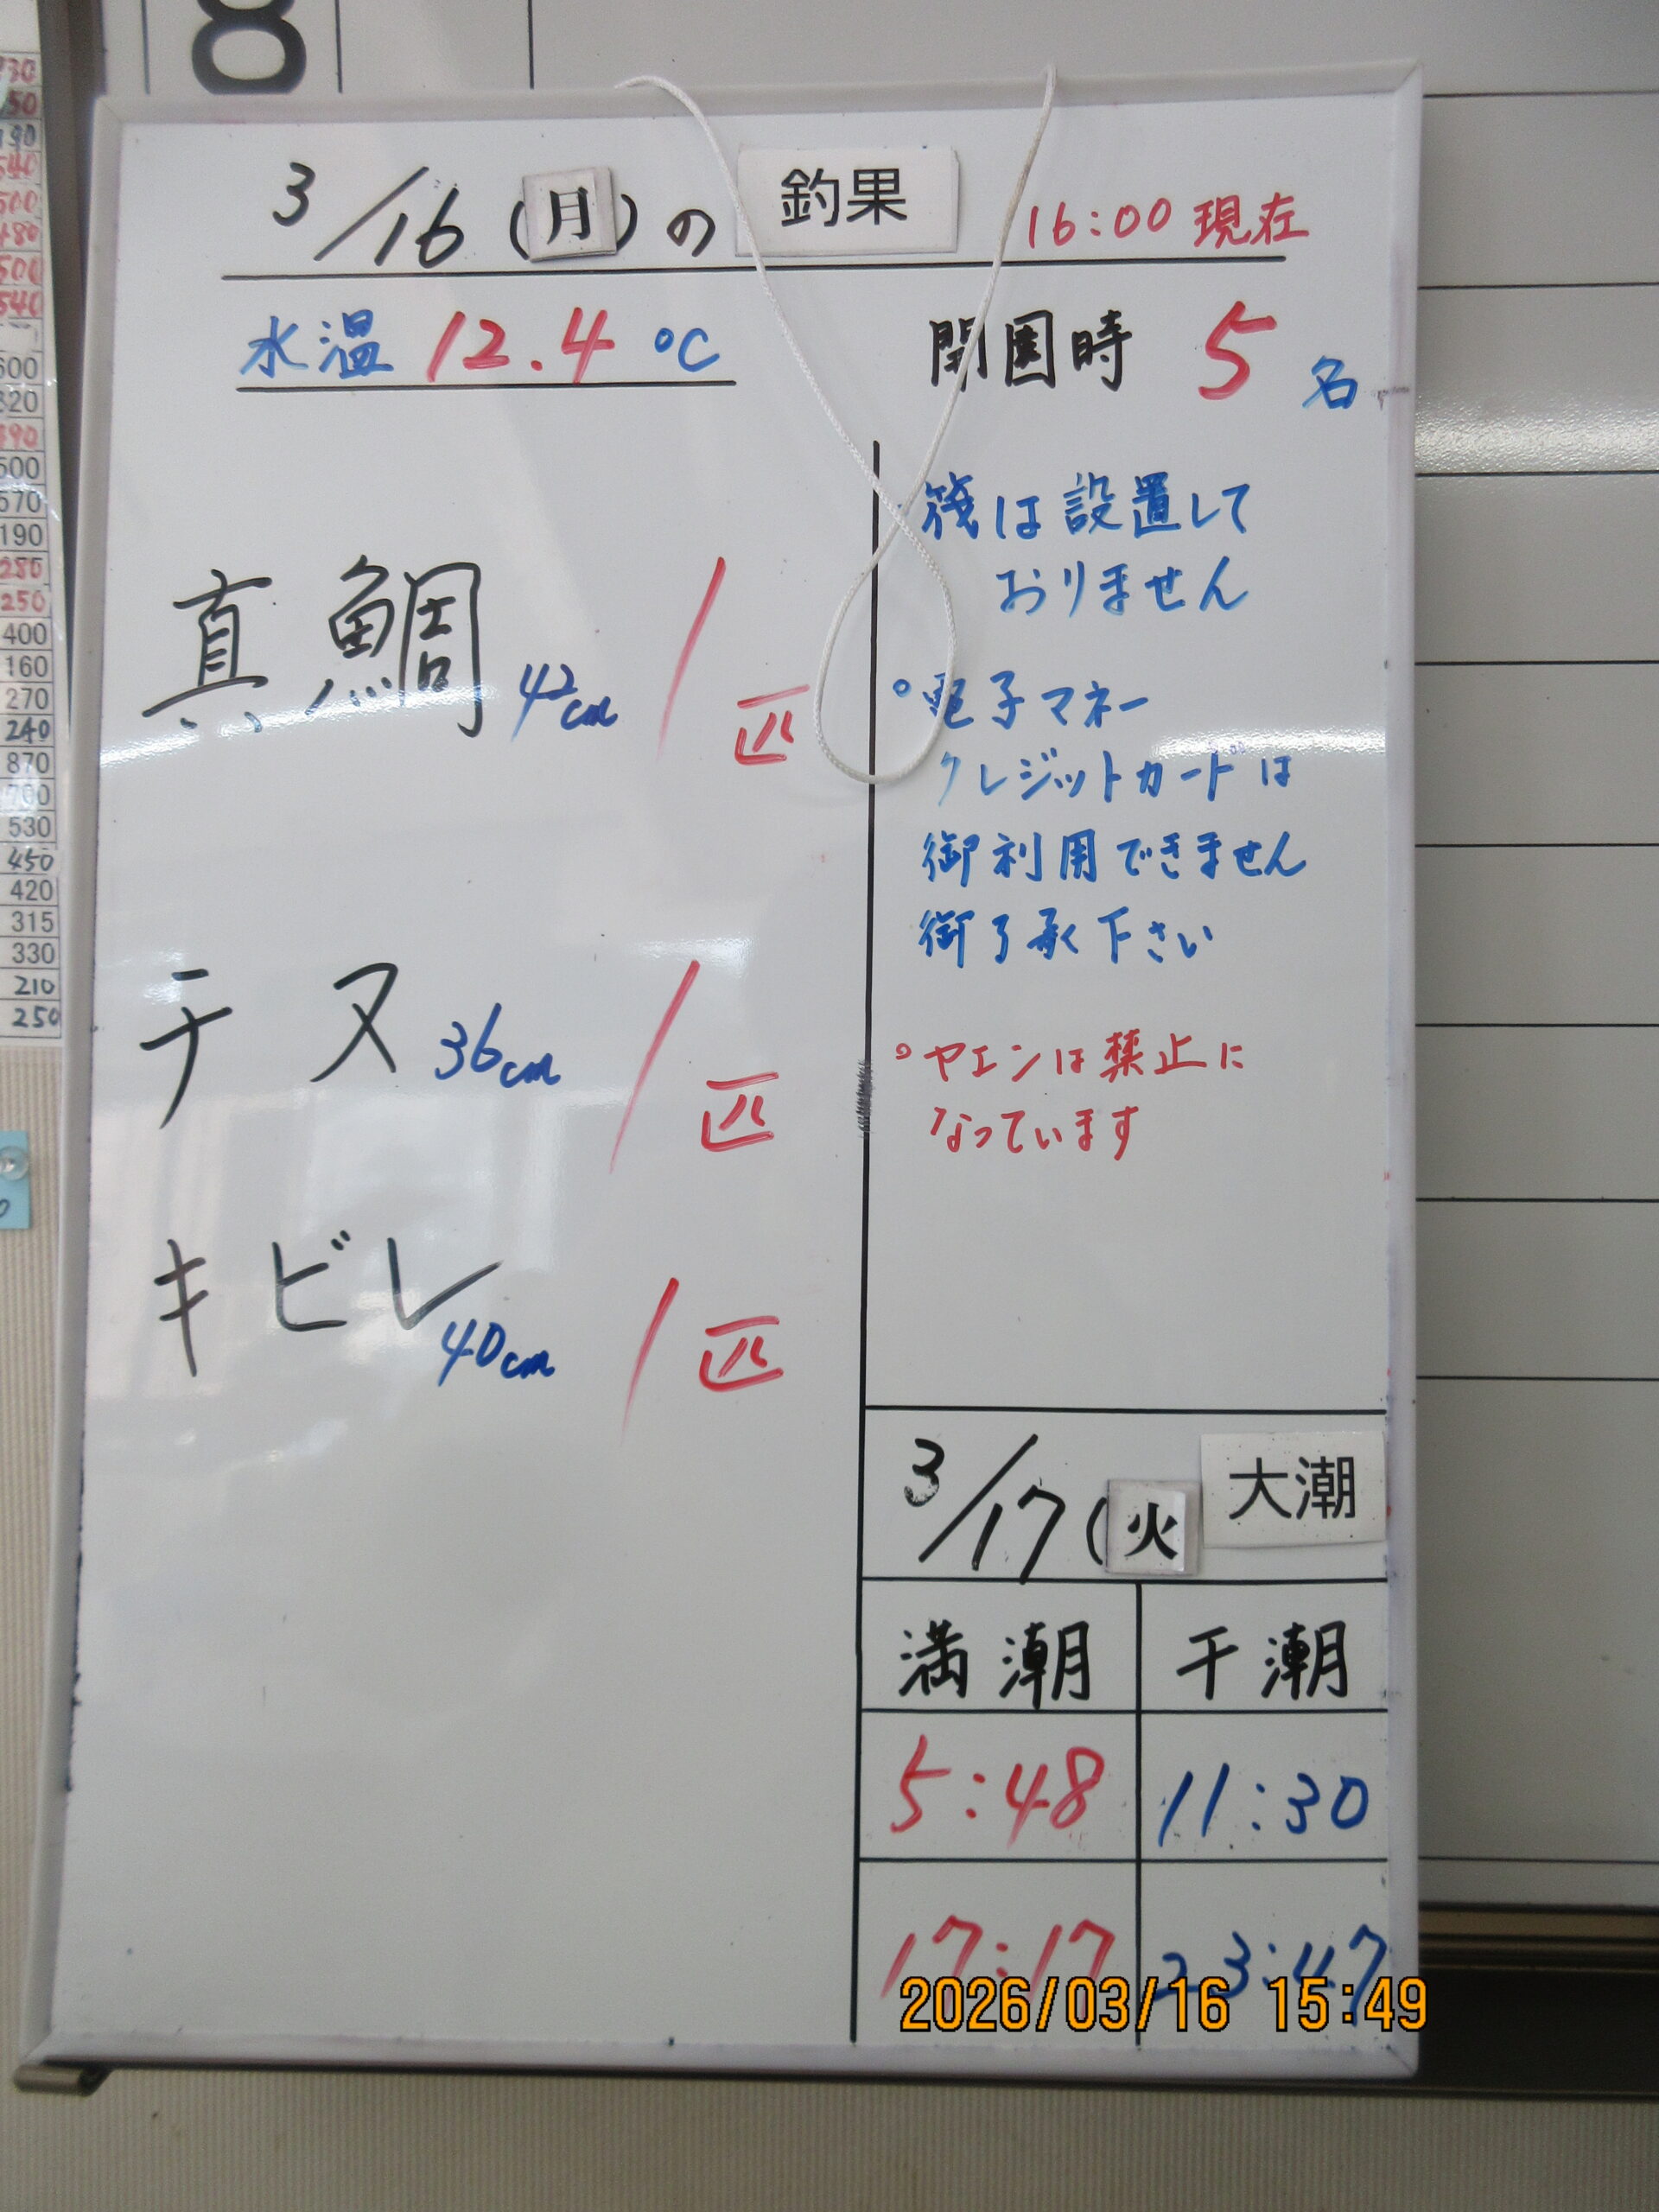 8
3/16(月)の 釣果 16:00 現在
水温 12.4 ℃
開園時 5名
真鯛 42cm 1匹
チヌ 36cm 1匹
キビレ 40cm 1匹
筏は設置して
おりません
。電子マネー
クレジットカードは
御利用できません
御了承下さい
。ヤエンは禁止に
なっています
3/17(火 大潮
満潮 干潮
5:48 11:30
17:17 23:47
2026/03/16 15:49
600
500
570
190
280
250
400
160
270
240
870
700
530
450
420
315
330
210
250